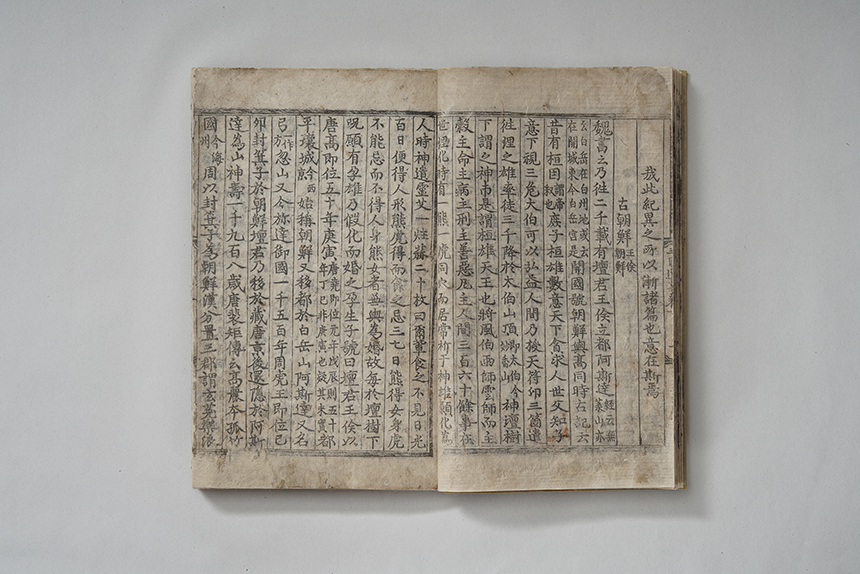 哉此紀異之所以漸諸篇也意在斯焉
古朝鮮王倹朝鮮
魏書云乃徃二千載有壇君王倹立都阿斯達經云無葉山亦
云白岳在白州地或云在開城東今白岳宮是開國號朝鮮與高同時古記云
昔有桓因謂帝釋也庶子桓雄數意天下貪求人世父知子
意下視三危大伯可以弘益人間乃授天符印三箇遣
徃理之雄率徒三千降於太伯山頂即太伯今妙香山神壇樹
下謂之神市是謂桓雄天王也將風伯雨師雲師而主
糓主命主病主刑主善惡凡主人間三百六十餘事在
世理化時有一熊一虎同穴而居常祈于神雄願化為
人時神遺靈艾一炷蒜二十枚曰爾軰食之不見日光
百日便得人形熊虎得而食之忌三七日熊得女身虎
不能忌而不得人身熊女者無與為婚故每於壇樹下
呪願有孕雄乃假化而婚之孕生子號曰壇君王倹以
唐高即位五十年庚寅唐堯即位元年戊辰則五十年丁巳非庚寅也疑其未實都
平壤城今西京始稱朝鮮又移都於白岳山阿斯達又名
弓一作方忽山又今旀達御國一千五百年周虎王即位己
卯封箕子於朝鮮壇君乃移於藏唐京後還隠於阿斯
達為山神壽一千九百八歳唐裴矩傳云高麗本孤竹
國今海州周以封箕子為朝鮮漢分置三郡謂玄菟樂浪